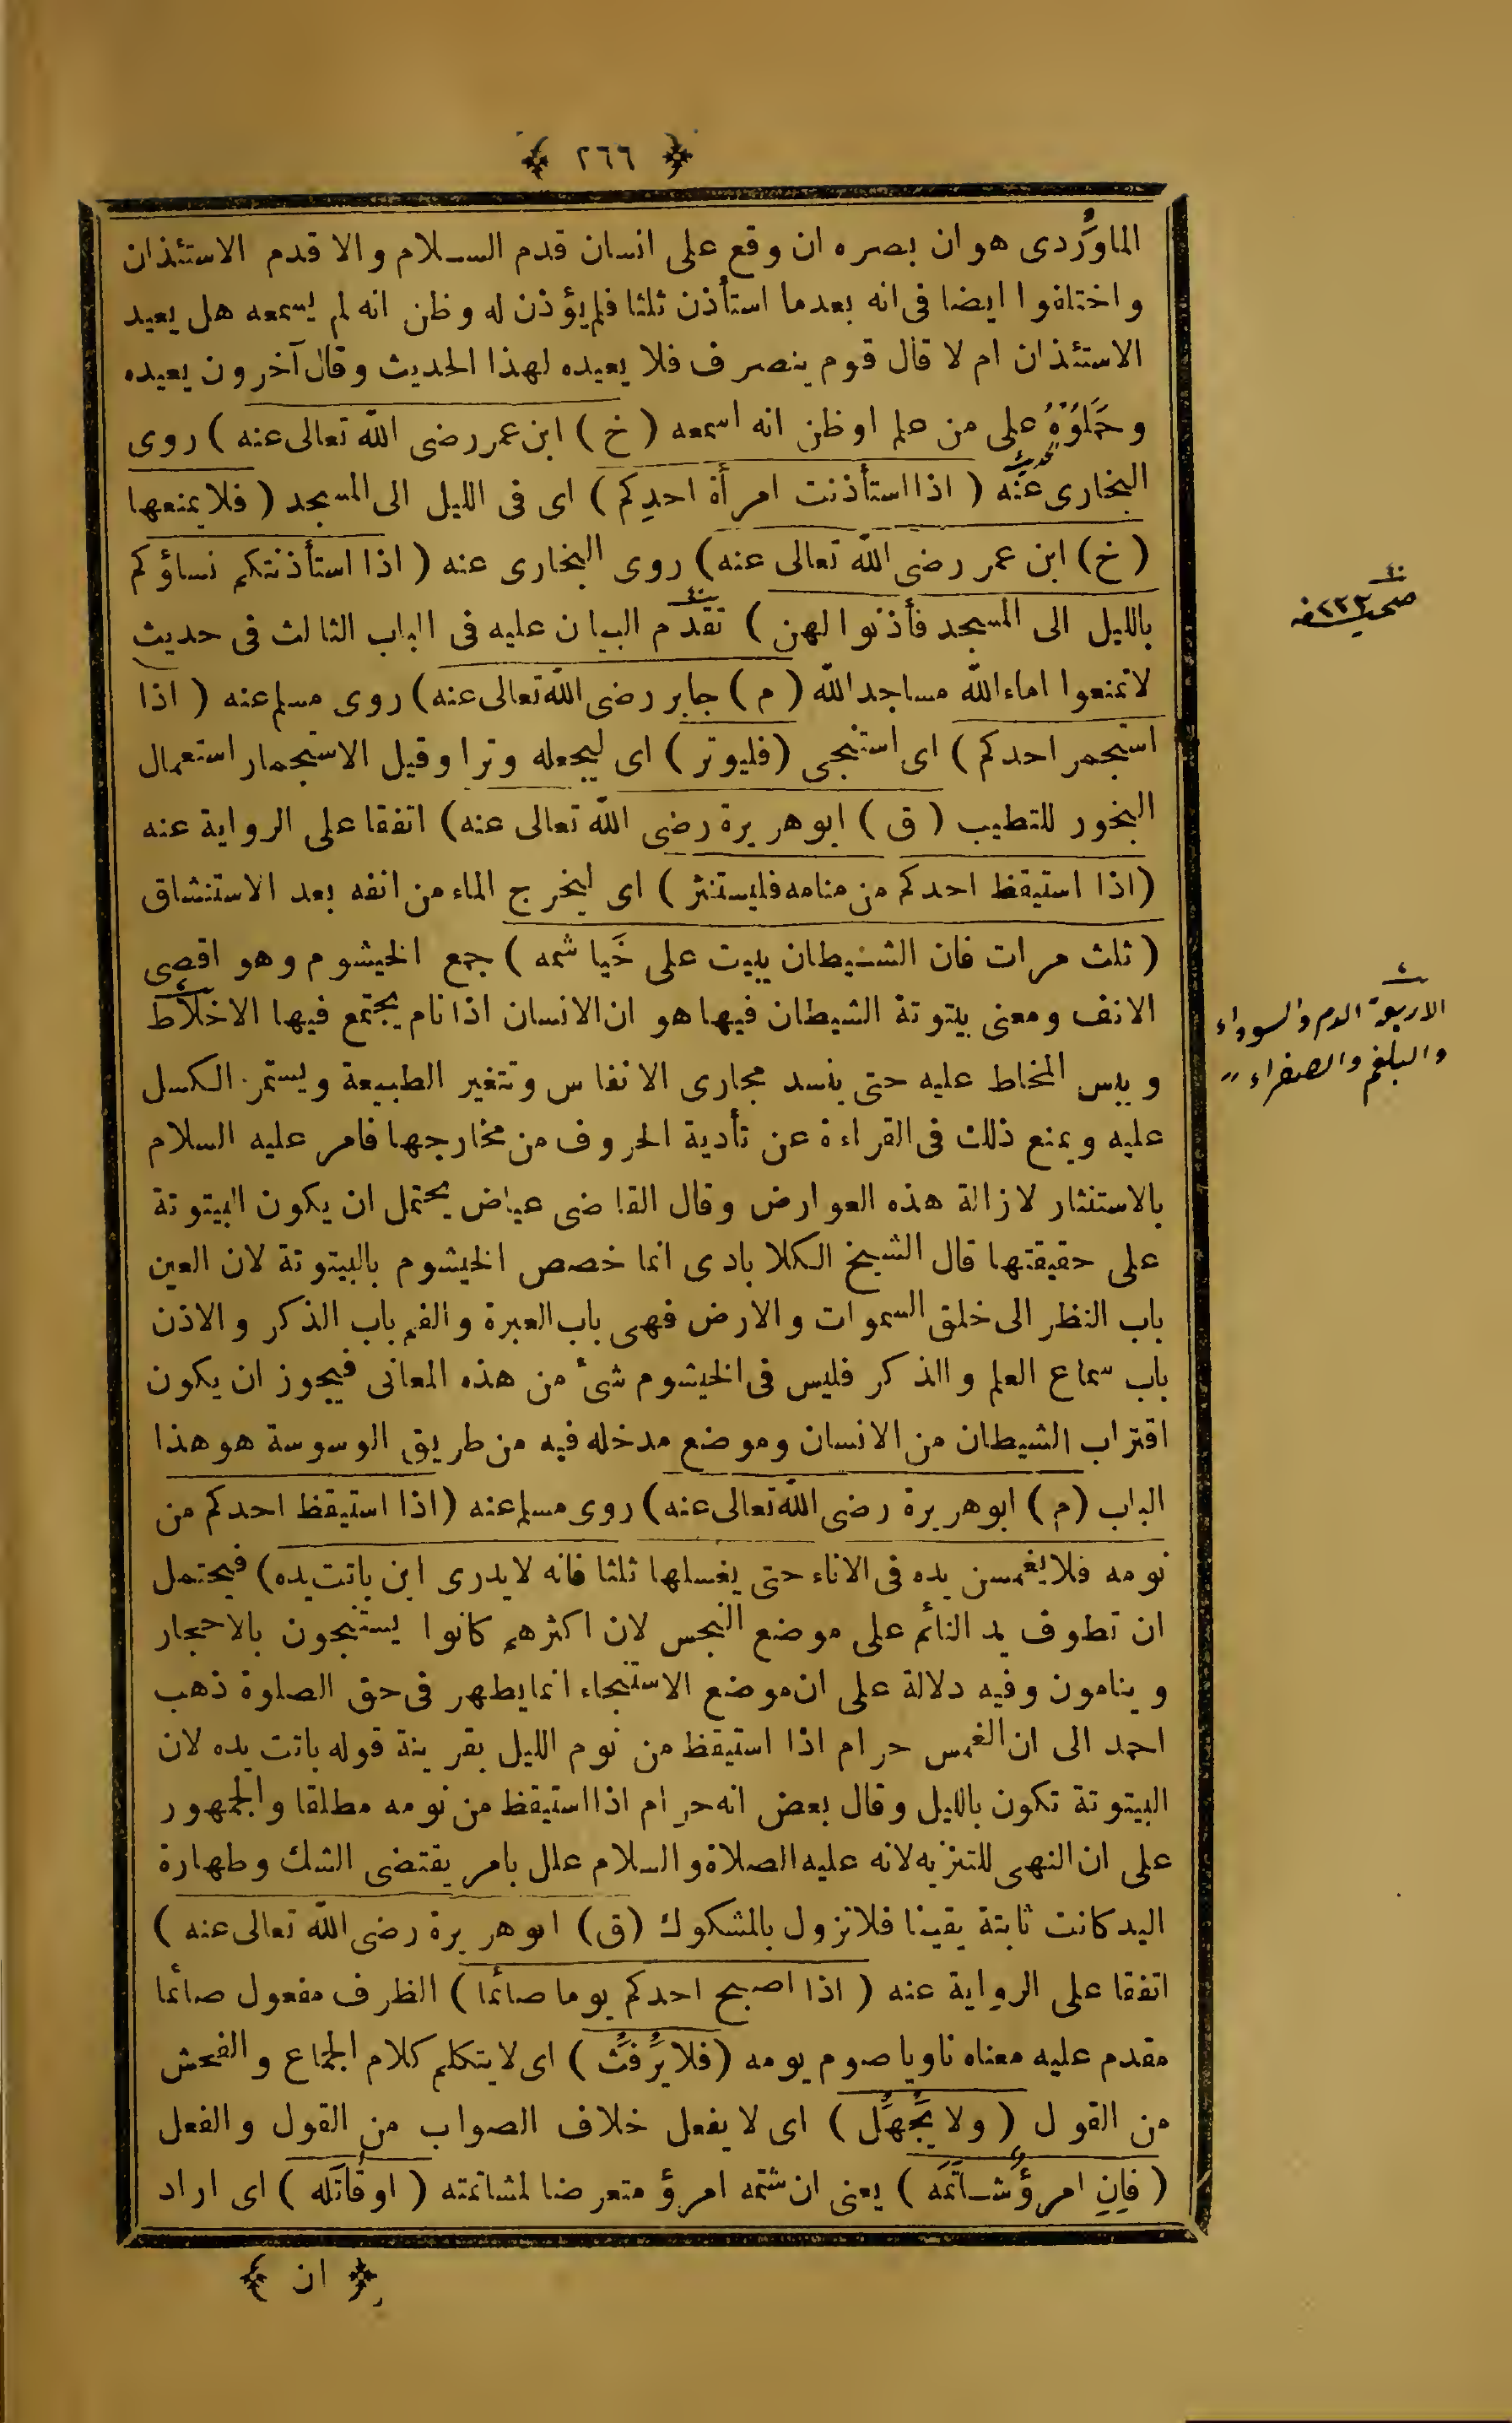 ﴿ ٢٦٦ ﴾
الماوردى هو ان بصره ان وقع على انسان قدم السلام والا قدم الاستئذان
واختلفوا ايضا فى انه بعدما استأذن ثلثا فلم يؤذن له وظن انه لم يسمعه هل يعيد
الاستئذان ام لا قال قوم ينصرف فلا يعيده لهذا الحديث وقال آخرون يعيده
وحملوه على من علم او ظن انه اسمعه ( خ ) ابن عمر رضى الله تعالى عنه ) روى
البخارى عنه ( اذا استأذنت امرأة احدكم ) اى فى الليل الى المسجد ( فلا يمنعها
( خ ) ابن عمر رضى الله تعالى عنه ) روى البخارى عنه ( اذا استأذنتكم نساؤكم
بالليل الى المسجد فأذنوا لهن ) تقدم البيان عليه فى الباب الثالث فى حديث
لا تمنعوا اماء الله مساجد الله ( م ) جابر رضى الله تعالى عنه ) روى مسلم عنه ( اذا
استجمر احدكم ) اى استنجى ( فليوتر ) اى ليجعله وترا وقيل الاستجمار استعمال
البخور للتطيب ( ق ) ابو هريرة رضى الله تعالى عنه ) اتفقا على الرواية عنه
( اذا استيقظ احدكم من منامه فليستنثر ) اى ليخرج الماء من انفه بعد الاستنشاق
( ثلث مرات فان الشيطان يبيت على خياشمه ) جمع الخيشوم وهو اقصى
الانف ومعنى بيتوتة الشيطان فيها هو ان الانسان اذا نام يجتمع فيها الاخلاط
ويبس المخاط عليه حتى ينسد مجارى الانفاس وتتغير الطبيعة ويستمر الكسل
عليه ويمنع ذلك فى القراءة عن تأدية الحروف من مخارجها فامر عليه السلام
بالاستنثار لازالة هذه العوارض وقال القاضى عياض يحتمل ان يكون البيتوتة
على حقيقتها قال الشيخ الكلابادى انما خصص الخيشوم بالبيتوتة لان العين
باب النظر الى خلق السموات والارض فهى باب العبرة والفم باب الذكر والاذن
باب سماع العلم والذكر فليس فى الخيشوم شئ من هذه المعانى فيجوز ان يكون
اقتراب الشيطان من الانسان وموضع مدخله فيه من طريق الوسوسة هو هذا
الباب ( م ) ابو هريرة رضى الله تعالى عنه ) روى مسلم عنه ( اذا استيقظ احدكم من
نومه فلا يغمسن يده فى الاناء حتى يغسلها ثلثا فانه لا يدرى اين باتت يده ) فيحتمل
ان تطوف يد النائم على موضع النجس لان اكثرهم كانوا يستنجون بالاحجار
وينامون وفيه دلالة على ان موضع الاستنجاء انما يطهر فى حق الصلوة ذهب
احمد الى ان الغمس حرام اذا استيقظ من نوم الليل بقرينة قوله باتت يده لان
البيتوتة تكون بالليل وقال بعض انه حرام اذا استيقظ من نومه مطلقا والجمهور
على ان النهى للتنزيه لانه عليه الصلاة والسلام علل بامر يقتضى الشك وطهارة
اليد كانت ثابتة يقينا فلا تزول بالمشكوك ( ق ) ابو هريرة رضى الله تعالى عنه )
اتفقا على الرواية عنه ( اذا اصبح احدكم يوما صائما ) الظرف مفعول صائما
مقدم عليه معناه ناويا صوم يومه ( فلا يرفث ) اى لا يتكلم كلام الجماع والفحش
من القول ( ولا يجهل ) اى لا يفعل خلاف الصواب من القول والفعل
( فان امرؤ شاتمه ) يعنى ان شتمه امرؤ متعرضا لمشاتمته ( او قاتله ) اى اراد
﴿ ان ﴾
الاربعة الدم والسوداء
والبلغم والصفراء